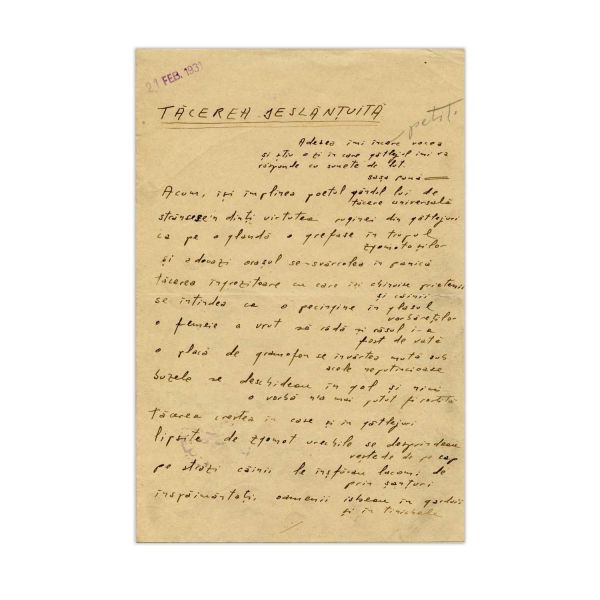 21 FEB. 1931
TĂCEREA DESLĂNȚUITĂ
petit.
Adesea îmi încerc vocea
și știu o zi în care gâtlejul îmi va
răspunde cu sunete de lut.
sașa pană
Acum, își împlinea poetul gândul lui de
tăcere universală
strâncese'n dinți virtutea ruginei din gâtlejuri
ca pe o glandă o grefase în trupul
zgomotoșilor
și adouazi orașul se svârcolea în panică
tăcerea îngrozitoare cu care își chinuise prietenii
și câinii
se întindea ca o pecingine în glasul
vorbăreților
o femeie a vrut să râdă și râsul i-a
fost de vată
o placă de gramofon se învârtea mută sub
acele neputincioase
buzele se deschideau în gol și nici
o vorbă n'a mai putut fi rostită
tăcerea creștea în case și în gâtlejuri
lipsite de zgomot urechile se desprindeau
veștede de pe cap
pe străzi câinii le înșfăcau lacomi de
prin șanțuri
înspăimântații oameni isbeau în garduri
și în tinichele